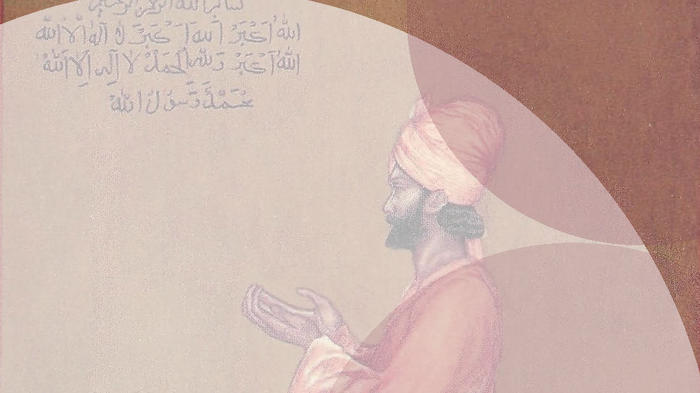 بسم الله الرحمن الرحيم
الله اكبر الله اكبر لا اله الا الله
الله اكبر ولله الحمد لا إله إلا الله
محمد رسول الله